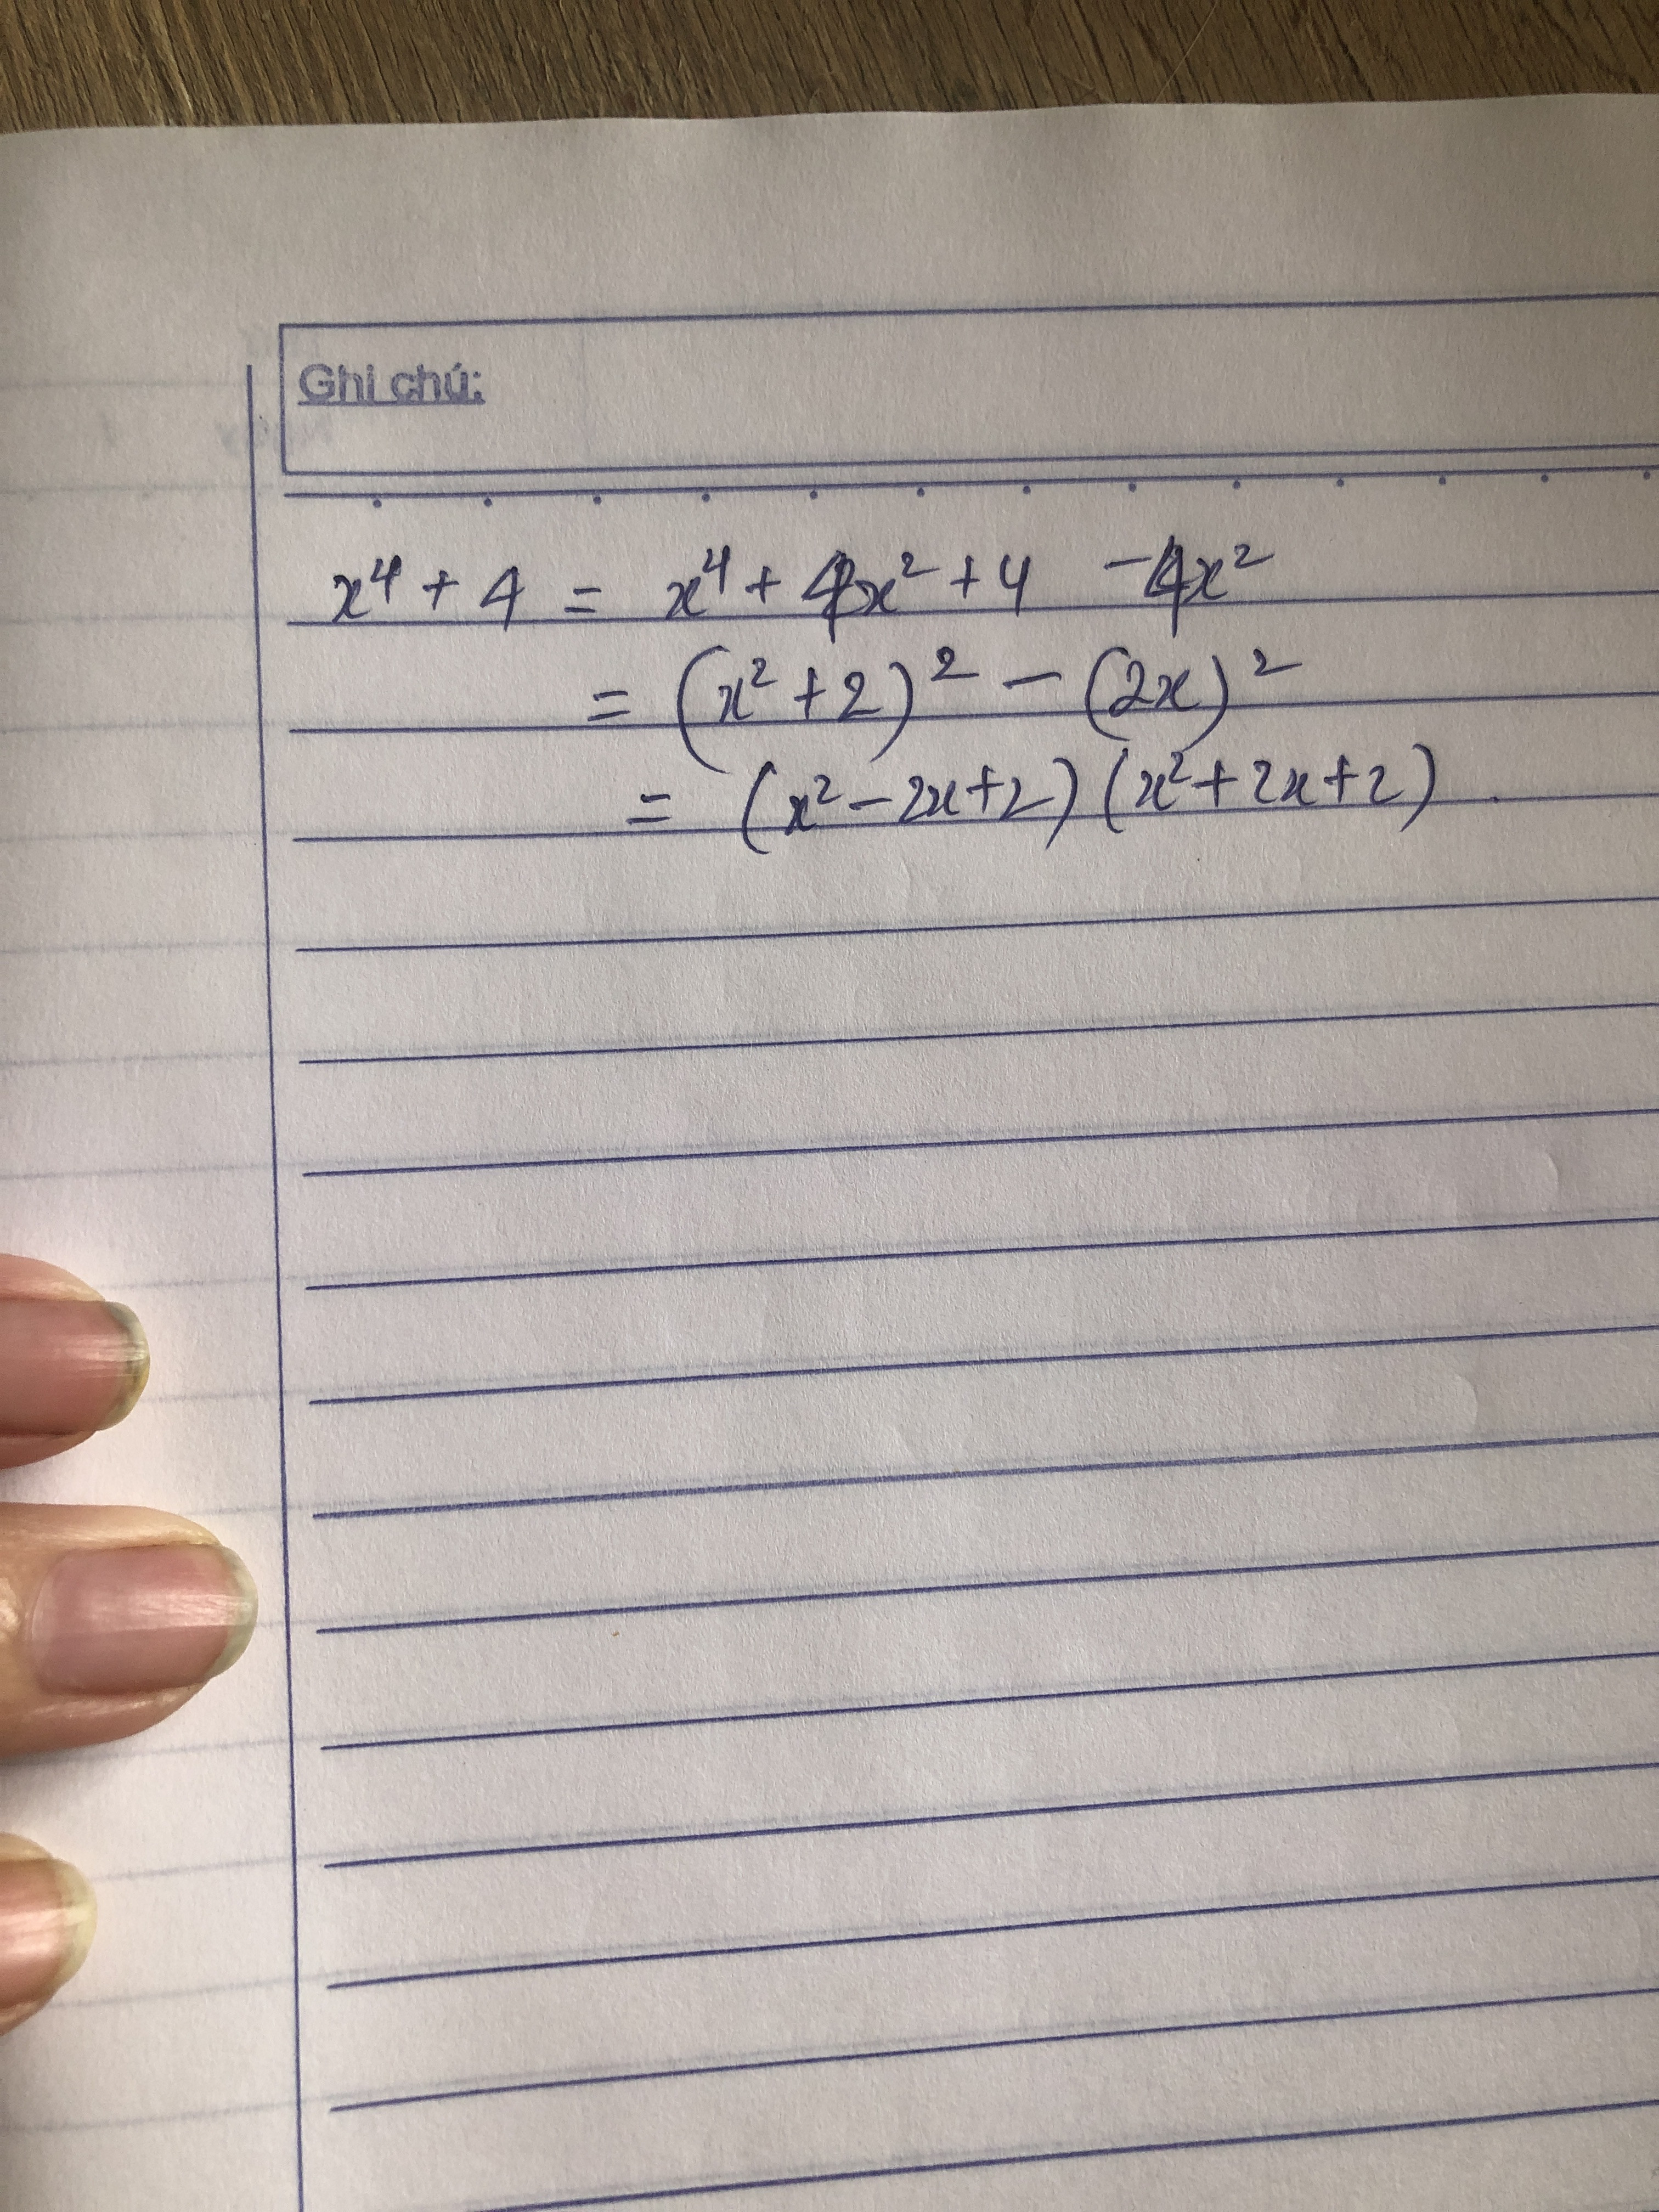 Ghi chú:
x⁴ + 4 = x⁴ + 4x² + 4 - 4x²
= (x² + 2)² - (2x)²
= (x² - 2x + 2)(x² + 2x + 2).